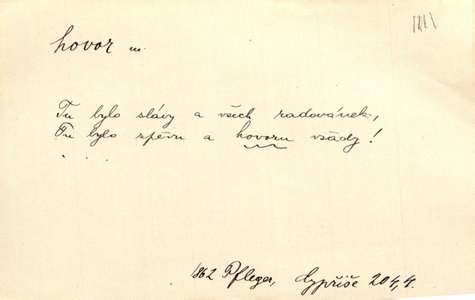 hovor m.
Tu bylo slávy a všech radovánek,
Tu bylo zpěvu a hovoru vsady!
1862 Pfleger, Cypřiše 204,4.